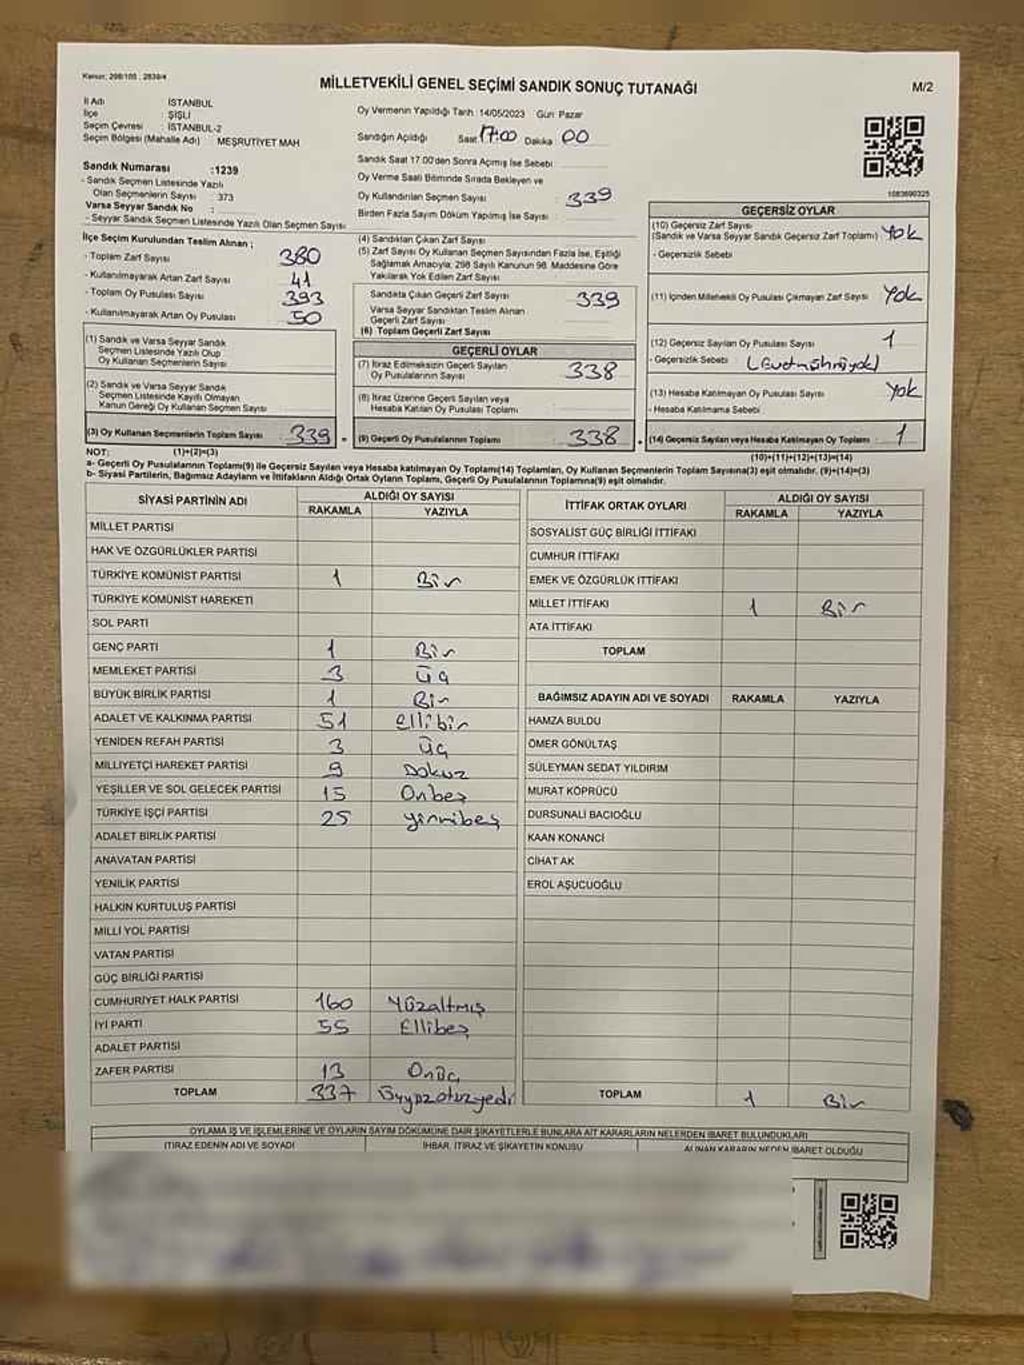 Kanun: 298/105 ; 2839/4
MİLLETVEKİLİ GENEL SEÇİMİ SANDIK SONUÇ TUTANAĞI
M/2
İl Adı İSTANBUL
İlçe ŞİŞLİ
Seçim Çevresi : İSTANBUL-2
Seçim Bölgesi (Mahalle Adı) MEŞRUTİYET MAH
Sandık Numarası :1239
- Sandık Seçmen Listesinde Yazılı
Olan Seçmenlerin Sayısı : 373
Varsa Seyyar Sandık No :
- Seyyar Sandık Seçmen Listesinde Yazılı Olan Seçmen Sayısı
Oy Vermenin Yapıldığı Tarih :14/05/2023 Gün: Pazar
Sandığın Açıldığı Saat 17:00 Dakika 00
Sandık Saat 17.00'den Sonra Açılmış İse Sebebi
Oy Verme Saati Bitiminde Sırada Bekleyen ve
Oy Kullandırılan Seçmen Sayısı : 339
Birden Fazla Sayım Döküm Yapılmış İse Sayısı
1083690325
İlçe Seçim Kurulundan Teslim Alınan ;
- Toplam Zarf Sayısı : 380
- Kullanılmayarak Artan Zarf Sayısı : 41
- Toplam Oy Pusulası Sayısı : 393
- Kullanılmayarak Artan Oy Pusulası : 50
(1) Sandık ve Varsa Seyyar Sandık
Seçmen Listesinde Yazılı Olup
Oy Kullanan Seçmenlerin Sayısı
(2) Sandık ve Varsa Seyyar Sandık
Seçmen Listesinde Kaydı Olmayan
Kanun Gereği Oy Kullanan Seçmen Sayısı
(3) Oy Kullanan Seçmenlerin Toplam Sayısı : 339
(1)+(2)=(3)
(4) Sandıktan Çıkan Zarf Sayısı
(5) Zarf Sayısı Oy Kullanan Seçmen Sayısından Fazla İse, Eşitliği
Sağlamak Amacıyla; 298 Sayılı Kanunun 98. Maddesine Göre
Yakılarak Yok Edilen Zarf Sayısı
Sandıkta Çıkan Geçerli Zarf Sayısı 339
Varsa Seyyar Sandıktan Teslim Alınan
Geçerli Zarf Sayısı
(6) Toplam Geçerli Zarf Sayısı
GEÇERLİ OYLAR
(7) İtiraz Edilmeksizin Geçerli Sayılan
Oy Pusulalarının Sayısı : 338
(8) İtiraz Üzerine Geçerli Sayılan veya
Hesaba Katılan Oy Pusulası Toplamı
(9) Geçerli Oy Pusulalarının Toplamı : 338
GEÇERSİZ OYLAR
(10) Geçersiz Zarf Sayısı
(Sandık ve Varsa Seyyar Sandık Geçersiz Zarf Toplamı) Yok
- Geçersizlik Sebebi
(11) İçinden Milletvekili Oy Pusulası Çıkmayan Zarf Sayısı Yok
(12) Geçersiz Sayılan Oy Pusulası Sayısı : 1
- Geçersizlik Sebebi
(13) Hesaba Katılmayan Oy Pusulası Sayısı Yok
- Hesaba Katılmama Sebebi
(14) Geçersiz Sayılan veya Hesaba Katılmayan Oy Toplamı : 1
(10)+(11)+(12)+(13)=(14)
NOT:
a- Geçerli Oy Pusulalarının Toplamı(9) ile Geçersiz Sayılan veya Hesaba katılmayan Oy Toplamı(14) Toplamları, Oy Kullanan Seçmenlerin Toplam Sayısına(3) eşit olmalıdır. (9)+(14)=(3)
b- Siyasi Partilerin, Bağımsız Adayların ve İttifakların Aldığı Oyların Toplamı, Geçerli Oy Pusulalarının Toplamına(9) eşit olmalıdır.
SİYASİ PARTİNİN ADI ALDIĞI OY SAYISI
RAKAMLA YAZIYLA
MİLLET PARTİSİ
HAK VE ÖZGÜRLÜKLER PARTİSİ
TÜRKİYE KOMÜNİST PARTİSİ 1 Bir
TÜRKİYE KOMÜNİST HAREKETİ
SOL PARTİ
GENÇ PARTİ 1 Bir
MEMLEKET PARTİSİ 3 Üç
BÜYÜK BİRLİK PARTİSİ 1 Bir
ADALET VE KALKINMA PARTİSİ 51 Ellibir
YENİDEN REFAH PARTİSİ 3 Üç
MİLLİYETÇİ HAREKET PARTİSİ 9 Dokuz
YEŞİLLER VE SOL GELECEK PARTİSİ 15 Onbeş
TÜRKİYE İŞÇİ PARTİSİ 25 yirmibeş
ADALET BİRLİK PARTİSİ
ANAVATAN PARTİSİ
YENİLİK PARTİSİ
HALKIN KURTULUŞ PARTİSİ
MİLLİ YOL PARTİSİ
VATAN PARTİSİ
GÜÇ BİRLİĞİ PARTİSİ
CUMHURİYET HALK PARTİSİ 160 Yüzaltmış
İYİ PARTİ 55 Ellibeş
ADALET PARTİSİ
ZAFER PARTİSİ 13 Onüç
TOPLAM 337 Üçyüzotuzyedi
İTTİFAK ORTAK OYLARI ALDIĞI OY SAYISI
RAKAMLA YAZIYLA
SOSYALİST GÜÇ BİRLİĞİ İTTİFAKI
CUMHUR İTTİFAKI
EMEK VE ÖZGÜRLÜK İTTİFAKI
MİLLET İTTİFAKI 1 Bir
ATA İTTİFAKI
TOPLAM
BAĞIMSIZ ADAYIN ADI VE SOYADI RAKAMLA YAZIYLA
HAMZA BULDU
ÖMER GÖNÜLTAŞ
SÜLEYMAN SEDAT YILDIRIM
MURAT KÖPRÜCÜ
DURSUNALİ BACIOĞLU
KAAN KONANCİ
CİHAT AK
EROL AŞUCUOĞLU
TOPLAM 1 Bir
OYLAMA İŞ VE İŞLEMLERİNE VE OYLARIN SAYIM DÖKÜMÜNE DAİR ŞİKAYETLERLE BUNLARA AİT KARARLARIN NELERDEN İBARET BULUNDUKLARI
İTİRAZ EDENİN ADI VE SOYADI İHBAR, İTİRAZ VE ŞİKAYETİN KONUSU ALINAN KARARIN NEDEN İBARET OLDUĞU